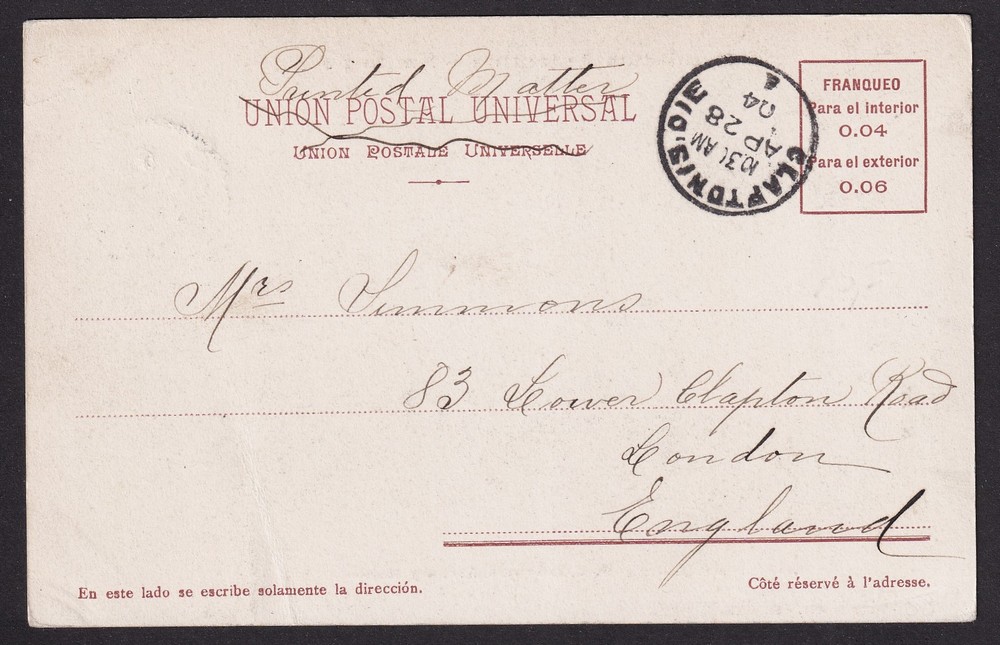 Printed Matter
UNION POSTAL UNIVERSAL
UNION POSTALE UNIVERSELLE
CLAPTON / S.O / E
10 30 AM
AP 28
04
FRANQUEO
Para el interior
0.04
Para el exterior
0.06
Mrs Simmons
83 Lower Clapton Road
London
England
En este lado se escribe solamente la dirección.
Côté réservé à l'adresse.